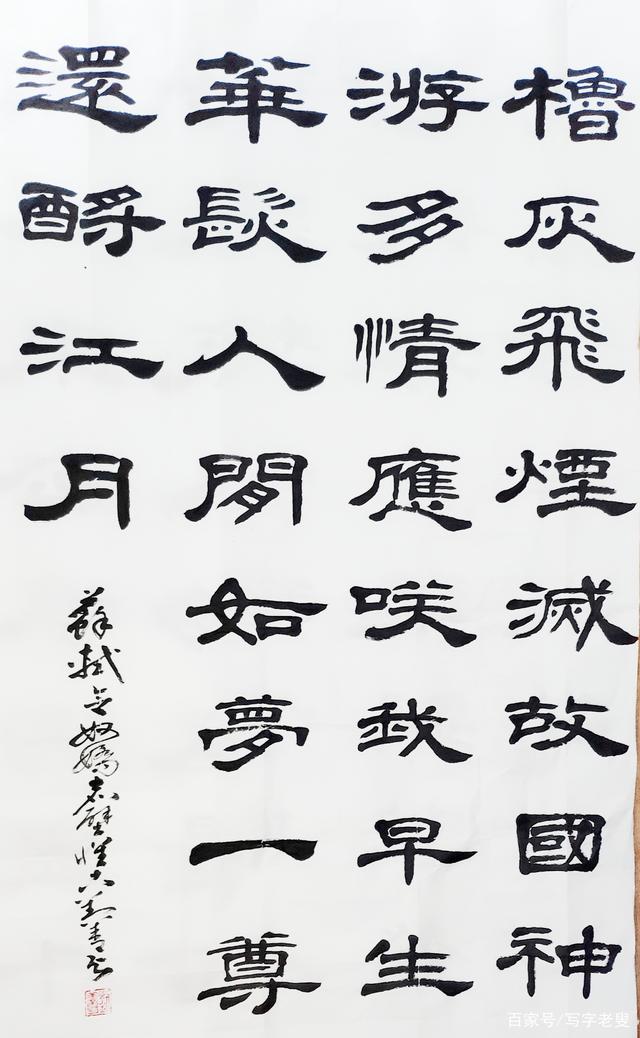 櫓灰飛煙滅故國神
游多情應咲我早生
華髮人閒如夢一尊
還酹江月
蘇軾念奴嬌赤壁懷古
百家号/写字老叟